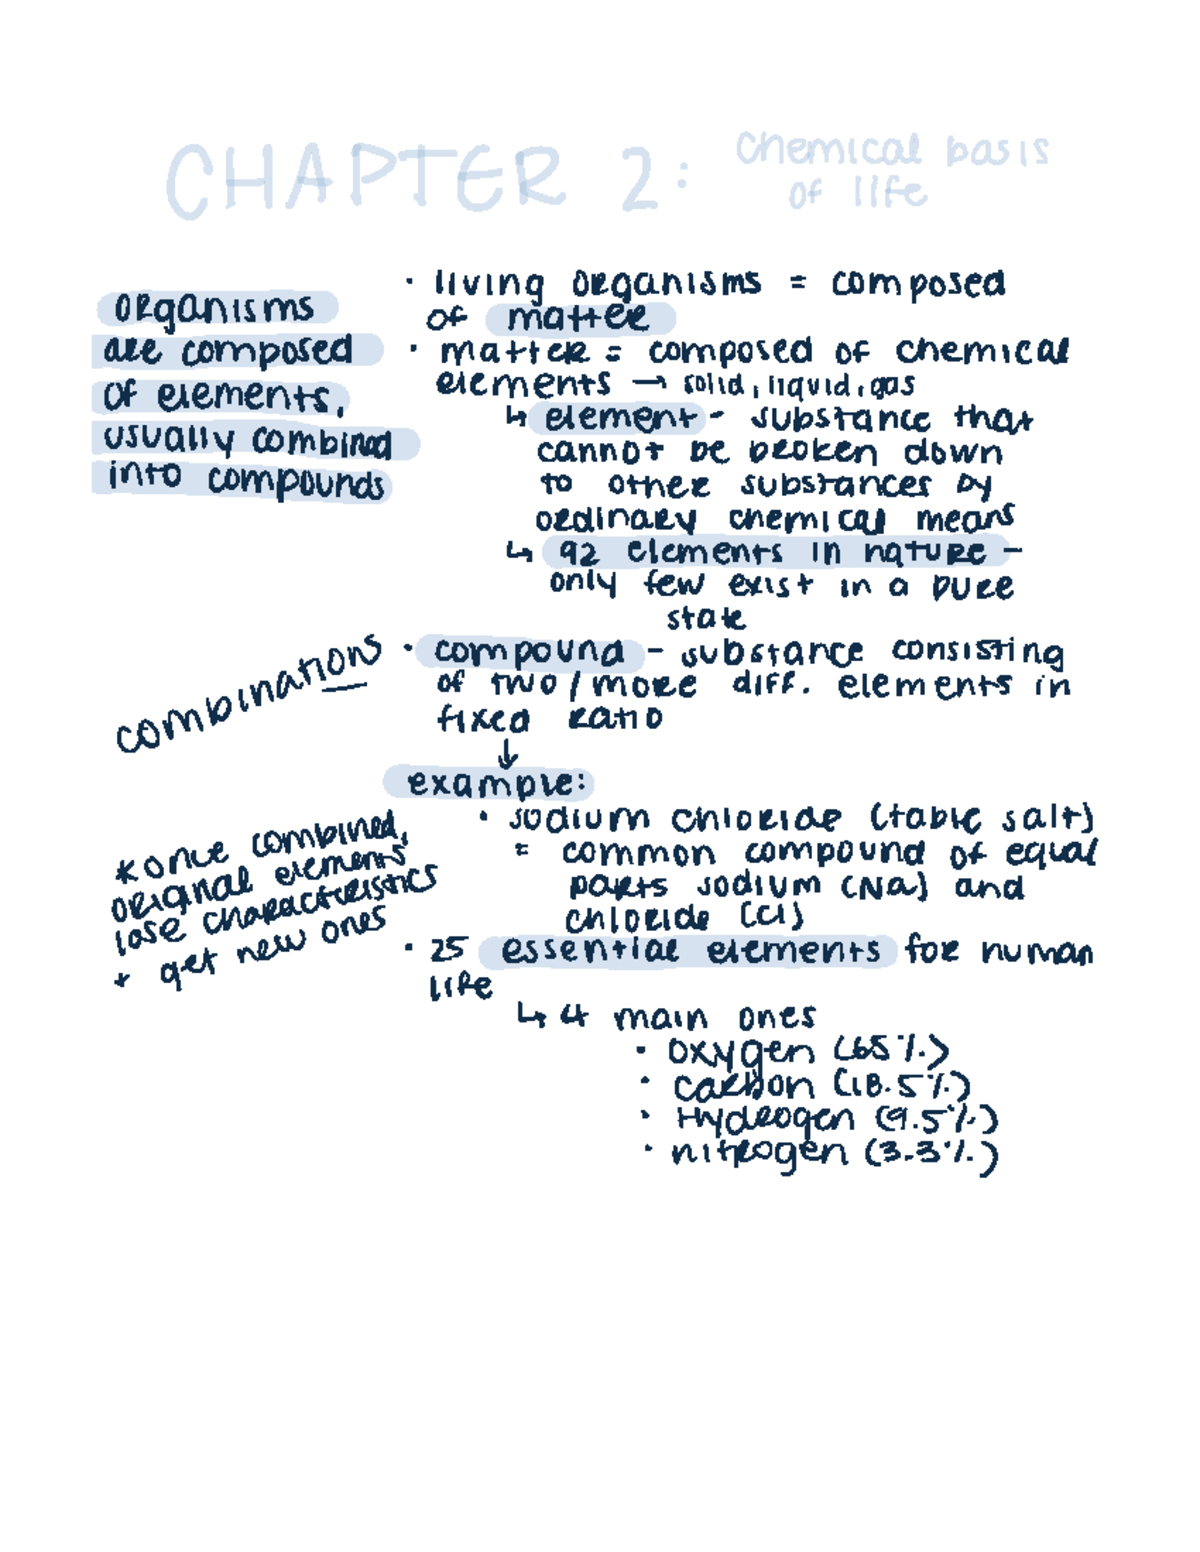 CHAPTER 2: Chemical basis
of life
organisms
are composed
of elements,
usually combined
into compounds
· living organisms = composed
of matter
· matter = composed of chemical
elements → solid, liquid, gas
↳ element - substance that
cannot be broken down
to other substances by
ordinary chemical means
↳ 92 elements in nature -
only few exist in a pure
state
combinations
· compound - substance consisting
of two/more diff. elements in
fixed ratio
↓
example:
· sodium chloride (table salt)
= common compound of equal
parts sodium (Na) and
chloride (Cl)
* once combined,
original elements
lose characteristics
+ get new ones
· 25 essential elements for human
life
↳ 4 main ones
· oxygen (65%)
· carbon (18.5%)
· Hydrogen (9.5%)
· nitrogen (3.3%)